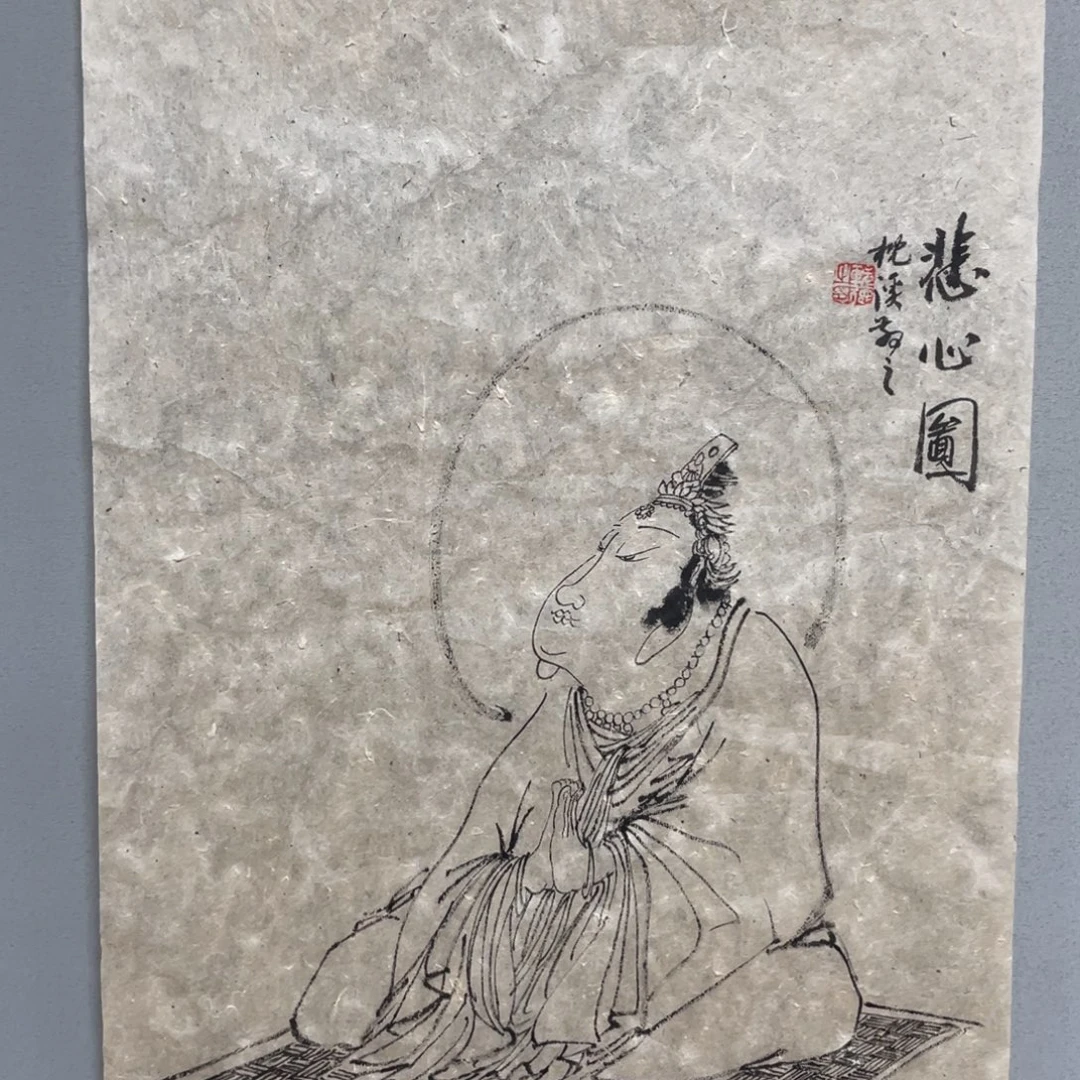 悲心圖
枕溪之